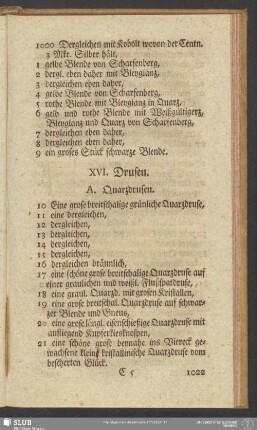 1000 Dergleichen mit Kobolt wovon der Centn.
3 Mrk. Silber hält,
1 gelbe Blende von Scharfenberg,
2 dergl. eben daher mit Bleyglanz,
3 dergleichen eben daher,
4 gelbe Blende von Scharfenberg,
5 rothe Blende mit Bleyglanz in Quarz,
6 gelb und rothe Blende mit Weißgültigerz,
Bleyglanz und Quarz von Scharfenberg,
7 dergleichen eben daher,
8 dergleichen eben daher,
9 ein groses Stück schwarze Blende.
XVI. Drusen.
A. Quarzdrusen.
10 Eine grose breitschalige grünliche Quarzdruse,
11 eine dergleichen,
12 dergleichen,
13 dergleichen,
14 dergleichen,
15 dergleichen,
16 dergleichen bräunlich,
17 eine schöne grose breitschalige Quarzdruse auf
einer graulichen und weißl. Flußspatdruse,
18 eine graul. Quarzd. mit grosen Kristallen,
19 eine grose breitschal. Quarzdruse auf schwar-
zer Blende und Gneus,
20 eine grose längl. eisenschießige Quarzdruse mit
aufliegend Kupferkiesknospen,
21 eine schöne grose beynahe ins Viereck ge-
wachsene kleine kristallinische Quarzdruse vom
bescherten Glück.
C 5
1022
SLUB